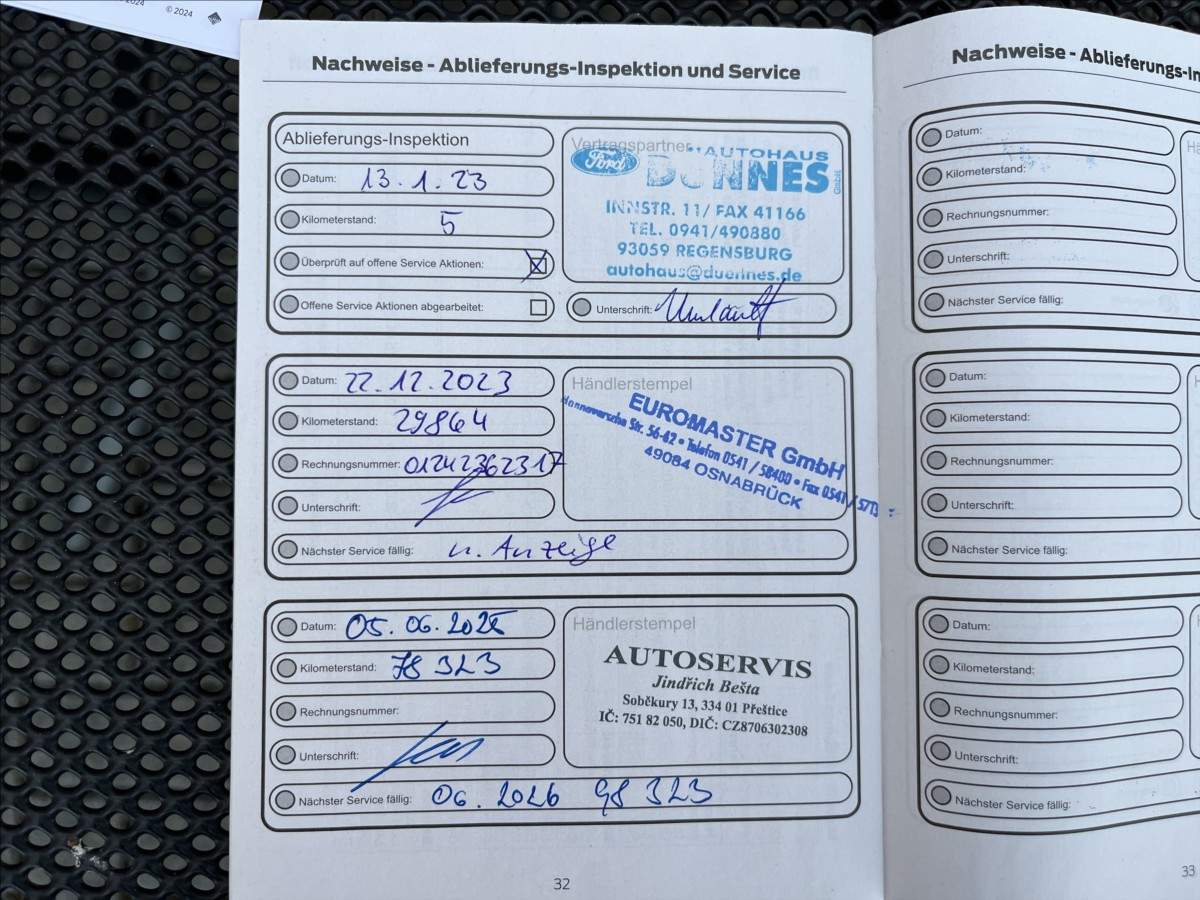 © 2024
Nachweise - Ablieferungs-Inspektion und Service
Ablieferungs-Inspektion
Datum: 13.1.23
Kilometerstand: 5
Überprüft auf offene Service Aktionen:
Offene Service Aktionen abgearbeitet:
Vertragspartner
Ford
AUTOHAUS
DÜNNES GmbH
INNSTR. 11/ FAX 41166
TEL. 0941/490880
93059 REGENSBURG
autohaus@duennes.de
Unterschrift:
Datum: 22.12.2023
Kilometerstand: 29864
Rechnungsnummer: 01242362317
Unterschrift:
Nächster Service fällig: n. Anzeige
Händlerstempel
EUROMASTER GmbH
Str. 56-62 • Telefon 0541 / 58400 • Fax 0541 /
49084 OSNABRÜCK
Datum: 05.06.2025
Kilometerstand: 78 323
Rechnungsnummer:
Unterschrift:
Nächster Service fällig: 06.2026 98 323
Händlerstempel
AUTOSERVIS
Jindřich Bešta
Soběkury 13, 334 01 Přeštice
IČ: 751 82 050, DIČ: CZ8706302308
32
Nachweise - Ablieferungs-In
Datum:
Kilometerstand:
Rechnungsnummer:
Unterschrift:
Nächster Service fällig:
Datum:
Kilometerstand:
Rechnungsnummer:
Unterschrift:
Nächster Service fällig:
Datum:
Kilometerstand:
Rechnungsnummer:
Unterschrift:
Nächster Service fällig:
33